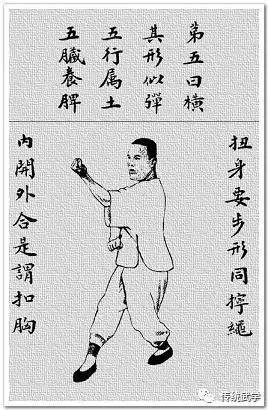 第五曰橫
其形似彈
五行属土
五臟養脾
扭身要步形同擰繩
內開外合是謂扣胸
传统武学